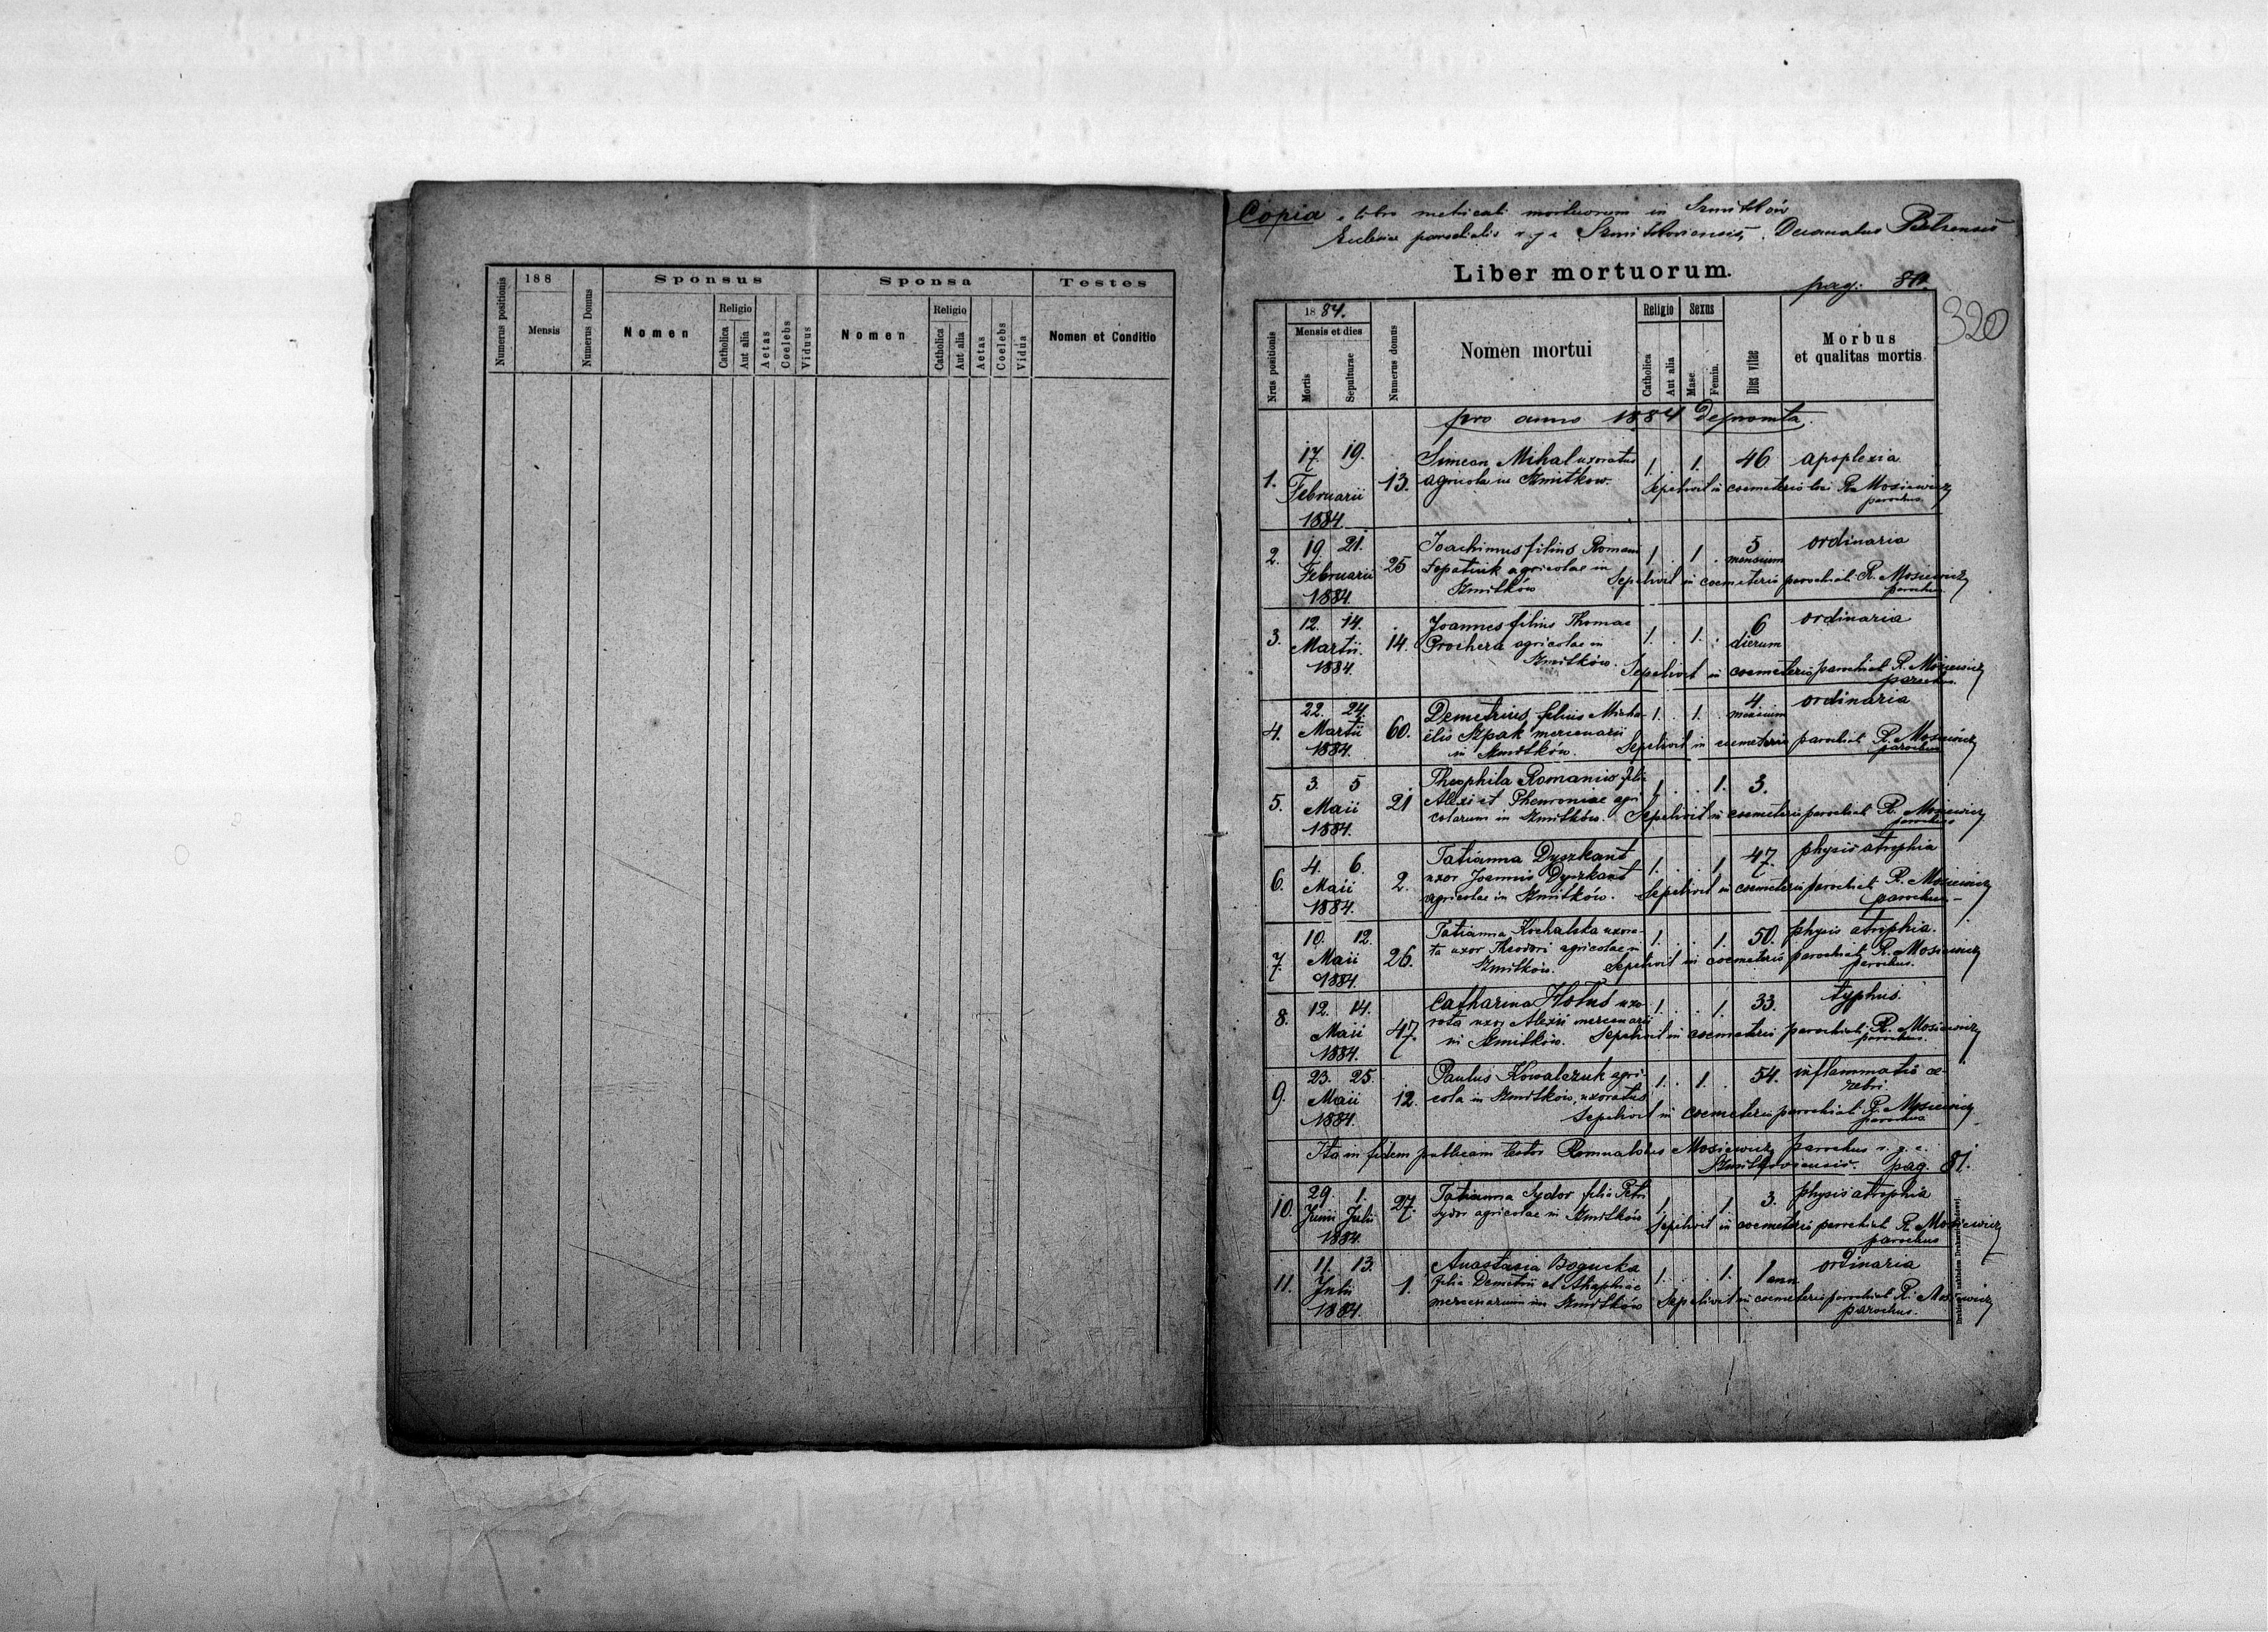 188
Sponsus
Sponsa
Testes
Numerus positionis
Mensis
Numerus Domus
Nomen
Religio
Catholica
Aut alia
Aetas
Coelebs
Viduus
Nomen
Religio
Catholica
Aut alia
Aetas
Coelebs
Vidua
Nomen et Conditio
Copia e libro metricali mortuorum in Szmitków
Ecclesiae parochialis r. g. c. Szmitkoviensis, Decanatus Belzensis
Liber mortuorum.
pag: 80.
320
Nrus positionis
1884.
Mensis et dies
Mortis
Sepulturae
Numerus domus
Nomen mortui
Religio
Catholica
Aut alia
Sexus
Masc.
Femin.
Dies vitae
Morbus
et qualitas mortis
pro anno 1884 depromta.
1. 17. 19. Februarii 1884. 13. Simeon Mihal uxoratus 1. 1. 46 apoplexia
agricola in Szmitkow. Sepelivit in coemeterio loci R. Mosiewicz
parochus.
2. 19. 21. Februarii 1884. 25 Joachimus filius Romani 1. 1. 5 mensium ordinaria
Lopatiuk agricolae in Sepelivit in coemeterio parochiali R. Mosiewicz
Szmitków parochus
3. 12. 14. Martii. 1884. 14. Joannes filius Thomae 1. 1. 6 dierum ordinaria
Prochera agricolae in
Szmitków. Sepelivit in coemeterio parochiali R. Mosiewicz
parochus.
4. 22. 24. Martii 1884. 60. Demetrius filius Micha- 1. 1. 4. mensium ordinaria
elis Szpak mercenarii
in Szmitków. Sepelivit in coemeterio parochiali R. Mosiewicz
parochus
5. 3. 5 Maii 1884. 21 Theophila Romaniw filia 1. 1. 3.
Alexi et Phewroniae agri
colarum in Szmitków. Sepelivit in coemeterio parochiali R. Mosiewicz
parochus
6. 4. 6. Maii 1884. 2. Tatianna Dyszkant 1. 1 47. physis atrophia
uxor Joannis Dyszkant
agricolae in Szmitków. Sepelivit in coemeterio parochiali R. Mosiewicz
parochus
7. 10. 12. Maii 1884. 26. Tatianna Kochalska uxora- 1. 1. 50. physis atrophia.
ta uxor Theodori agricolae in
Szmitków. Sepelivit in coemeterio parochiali R. Mosiewicz
parochus.
8. 12. 14. Maii 1884. 47. Catharina uxo- 1. 1. 33. typhus.
rata uxor Alexii mercenarii
in Szmitków. Sepelivit in coemeterio parochiali R. Mosiewicz
parochus.
9. 23. 25. Maii 1884. 12. Paulus Kowalczuk agri- 1. 1. 54. inflammatio ce-
cola in Szmitków, uxoratus rebri.
Sepelivit in coemeterio parochiali R. Mosiewicz
parochus
Ita in fidem publicam testor Romualdus Mosiewicz parochus r. g. c.
Szmitkoviensis. pag. 81.
10. 29. 1. Junii Julii 1884. 27. Tatianna Sydor filia Petri 1. 1. 3. physis atrophia
Sydor agricolae in Szmitków Sepelivit in coemeterio parochiali R. Mosiewicz
parochus
11. 11. 13. Julii 1884. 1. Anastasia Bogucka 1. 1. 1 ann ordinaria
filia Demetrii et Ahaphiae
mercenariorum in Szmitków Sepelivit in coemeterio parochiali R. Mosiewicz
parochus.